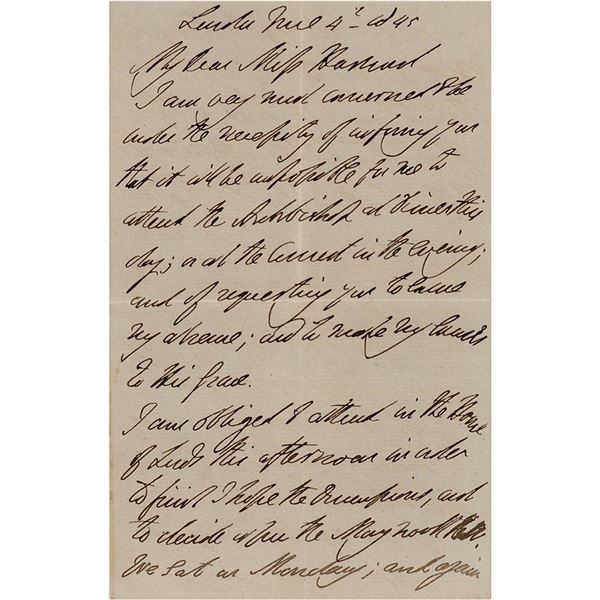 London June 4th 1845
My Dear Miss Harcourt
I am very much concerned to be
under the necessity of informing you
that it will be impossible for me to
attend the Archbishop at Dinner this
day; or at the Concert in the Evening;
and of requesting you to excuse
my absence; and to make my Excuses
to His Grace.
I am obliged to attend in the House
of Lords this afternoon in order
to finish I hope the Discussions, and
to decide upon the Maynooth Bill.
We sat on Monday; and again